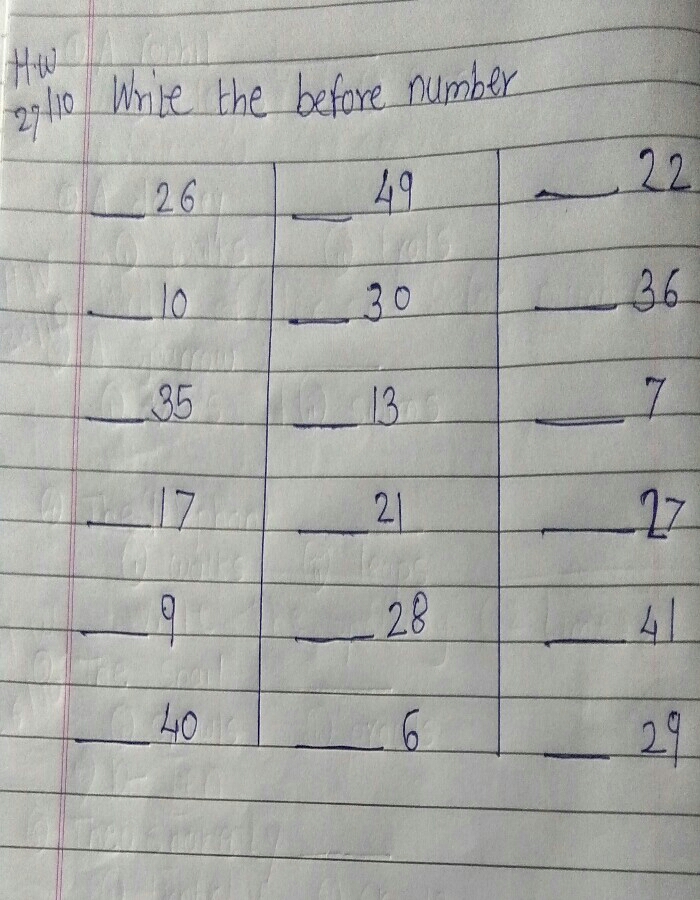 H.W
29/10 Write the before number
___ 26 ___ 49 ___ 22
___ 10 ___ 30 ___ 36
___ 35 ___ 13 ___ 7
___ 17 ___ 21 ___ 27
___ 9 ___ 28 ___ 41
___ 40 ___ 6 ___ 29